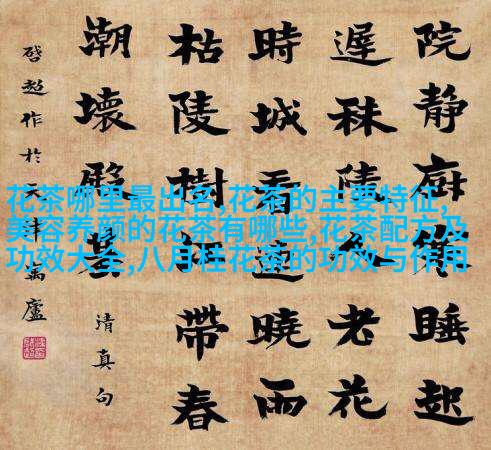 花茶哪里最出名,花茶的主要特征,
美容养颜的花茶有哪些,花茶配方及
功效大全,八月桂花茶的功效与作用
院靜廚睡起
遲秣陵老花
時城看曉雨
枯陵樹帶春
潮壞
清真句
啓超作於天津寓廬